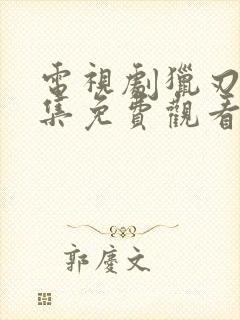 電視劇獵刃
集免費觀看
郭慶文